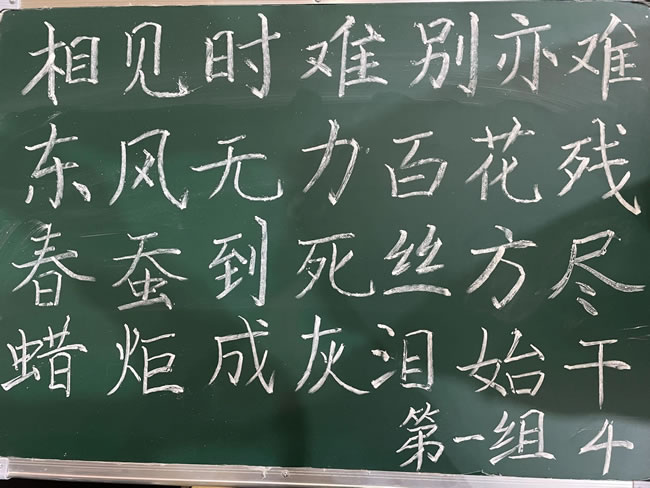 相见时难别亦难
东风无力百花残
春蚕到死丝方尽
蜡炬成灰泪始干
第一组 4